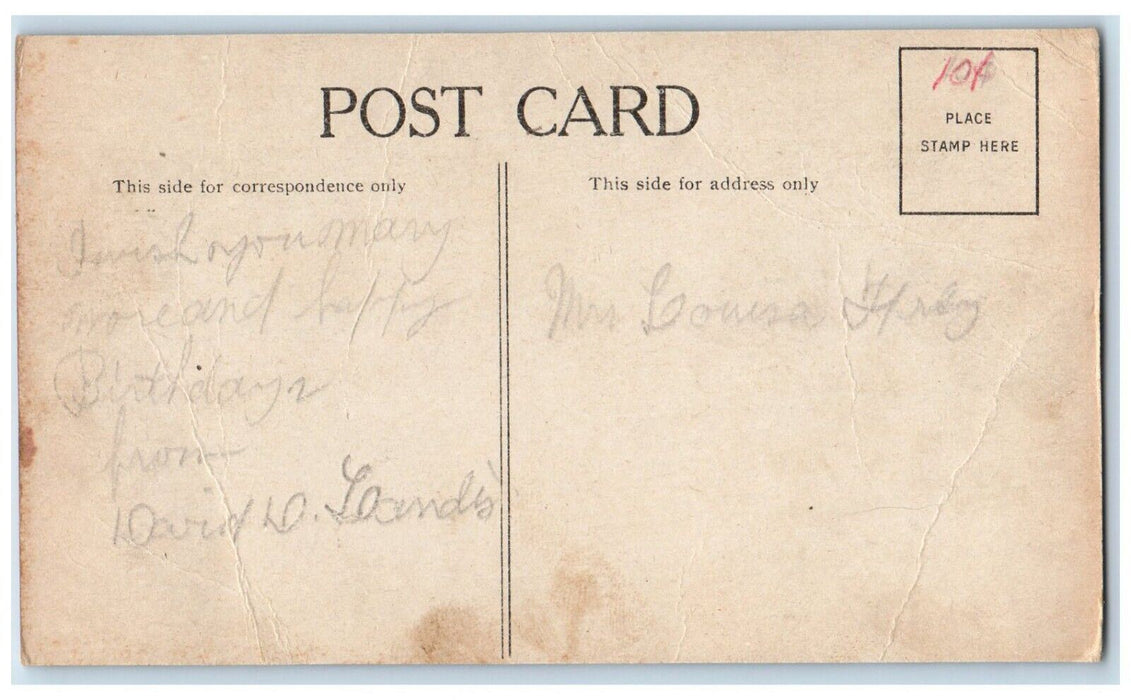 10¢
POST CARD
PLACE
STAMP HERE
This side for correspondence only
This side for address only
I wish you many
more and happy
Birthdays
from
David D. Landis
Mrs Louisa